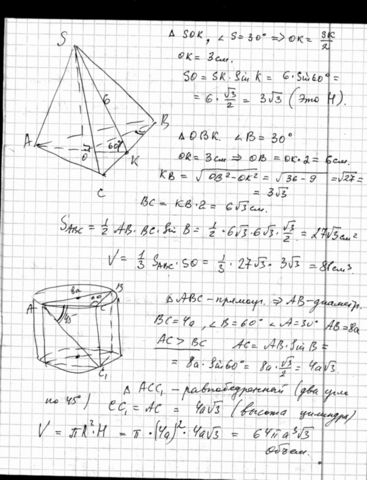 △ SOK, ∠S = 30° ⇒ OK = SK/2
OK = 3 см.
SO = SK · Sin K = 6 · Sin 60° =
= 6 · √3/2 = 3√3 (Это H)
S
6
A
B
O
60°
K
C
△ OBK. ∠B = 30°
OK = 3 см ⇒ OB = OK · 2 = 6 см.
KB = √(OB² - OK²) = √(36 - 9) = √27 =
= 3√3
BC = KB · 2 = 6√3 см.
S ABC = 1/2 AB · BC · Sin B = 1/2 · 6√3 · 6√3 · √3/2 = 27√3 см²
V = 1/3 S ABC · SO = 1/3 · 27√3 · 3√3 = 81 см³
8a
B
A
C
45°
C₁
△ ABC - прямоуг. ⇒ AB - диаметр.
BC = 4a, ∠B = 60° ∠A = 30° AB = 8a
AC > BC AC = AB · Sin B =
= 8a · Sin 60° = 8a · √3/2 = 4a√3
△ ACC₁ - равнобедренный (два угла
по 45°) CC₁ = AC = 4a√3 (высота цилиндра)
V = πR² · H = π · (4a)² · 4a√3 = 64πa³√3
объем.